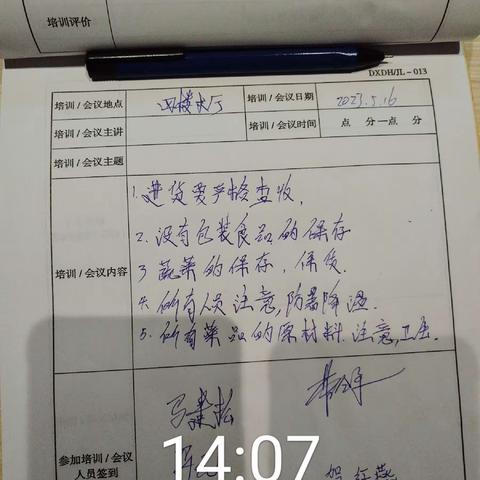 培训评价
DXDH/JL-013
培训/会议地点 四楼大厅 培训/会议日期 2023.5.16
培训/会议主讲 培训/会议时间 点 分—点 分
培训/会议主题
培训/会议内容
1.进货要严格查收,
2.没有包装食品的保存
3 蔬菜的保存,保质.
4.所有人员注意,防暑降温.
5.所有菜品的原材料.注意,卫生.
参加培训/会议
人员签到
14:07